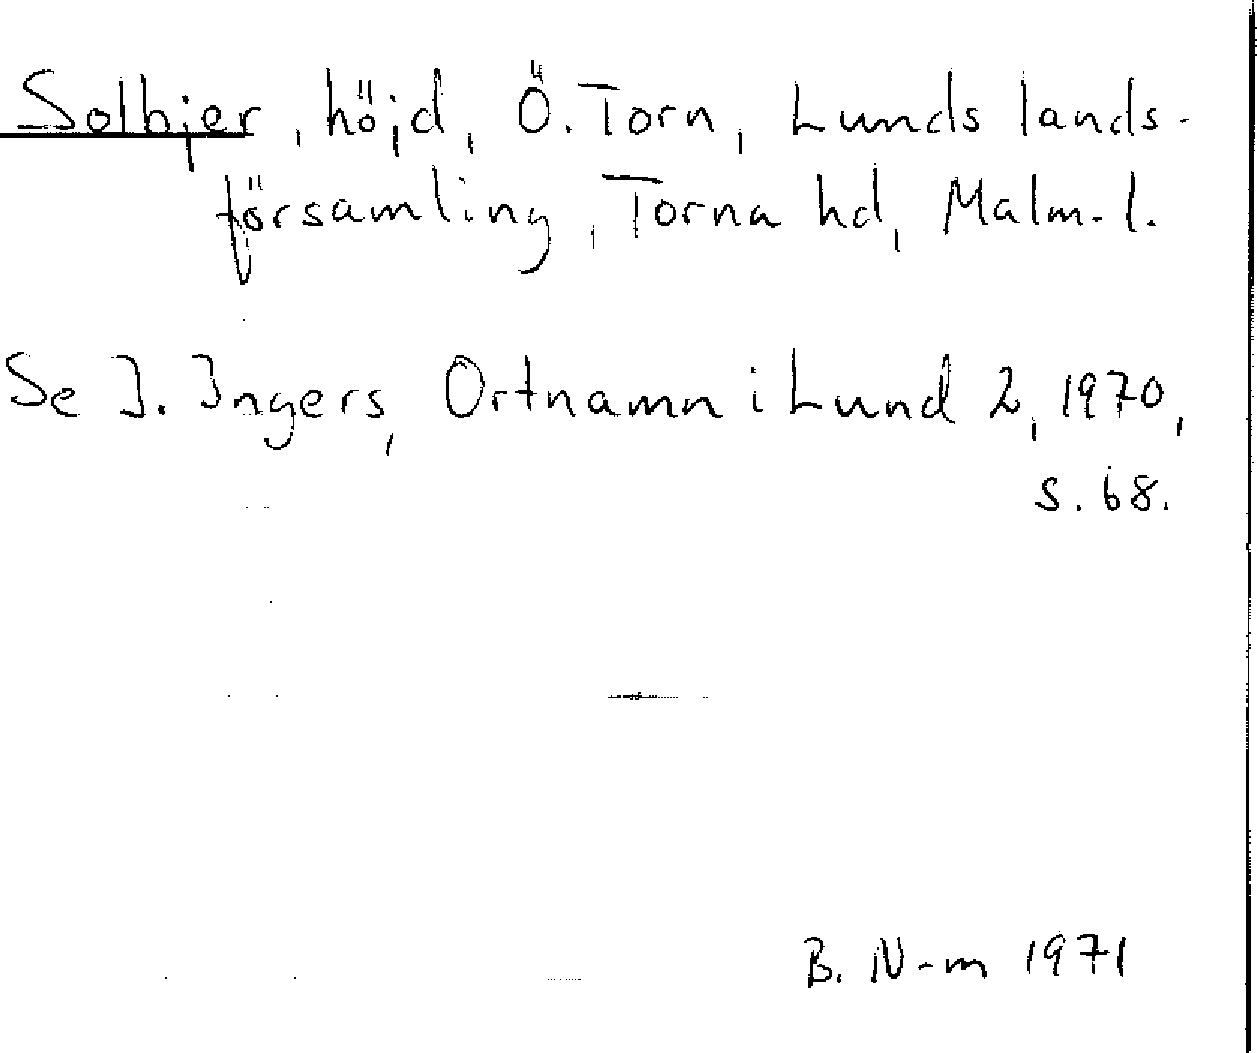 Solbjer, höjd, Ö. Torn, Lunds lands-
församling, Torna hd, Malm. l.
Se I. Ingers, Ortnamn i Lund 2, 1970,
s. 68.
B. N-m 1971